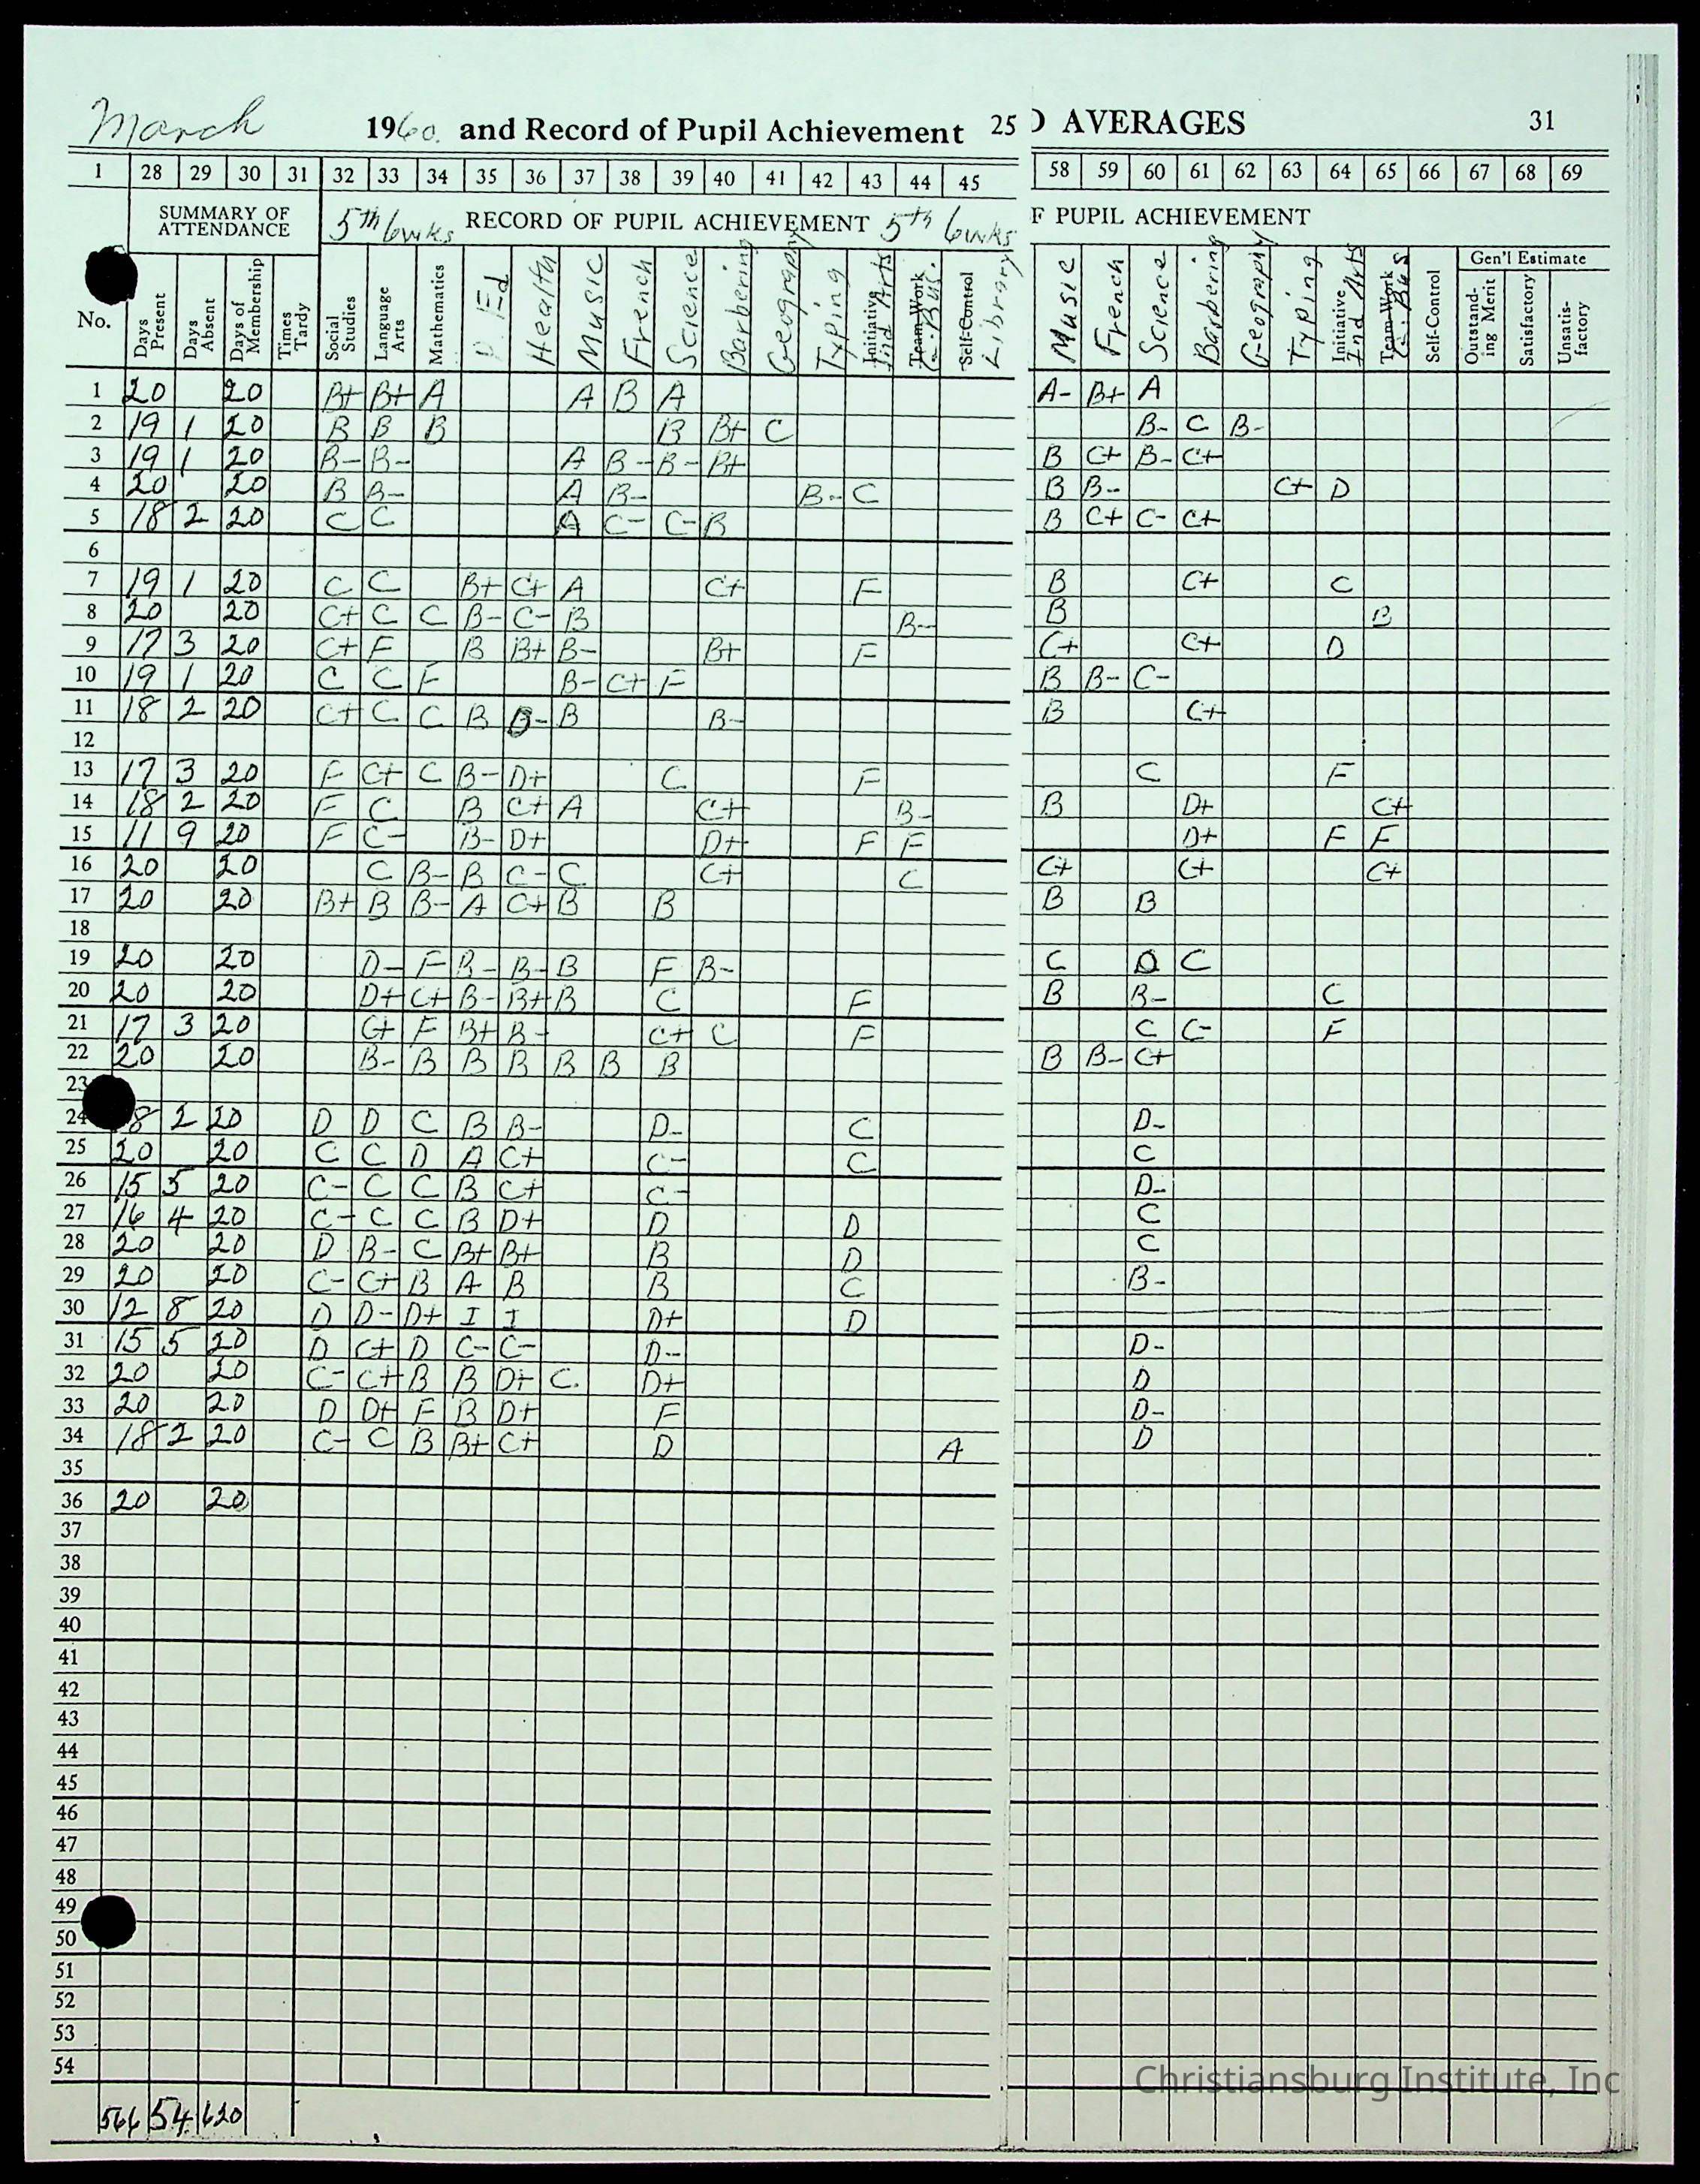 March 1960. and Record of Pupil Achievement 25
D AVERAGES 31
1 28 29 30 31 32 33 34 35 36 37 38 39 40 41 42 43 44 45
58 59 60 61 62 63 64 65 66 67 68 69
SUMMARY OF ATTENDANCE 5th 6 wks RECORD OF PUPIL ACHIEVEMENT 5th 6 wks
F PUPIL ACHIEVEMENT
Gen'l Estimate
No. Days Present Days Absent Days of Membership Times Tardy Social Studies Language Arts Mathematics P. Ed Health Music French Science Barbering Geography Typing Initiative Ind Arts Team Work G. Bus. Self-Control Library
Music French Science Barbering Geography Typing Initiative Ind Arts Team Work G. Bus Self-Control Outstanding Merit Satisfactory Unsatisfactory
1 20 20 B+ B+ A A B A A- B+ A
2 19 1 20 B B B B B+ C B- C B-
3 19 1 20 B- B- A B- B- B+ B C+ B- C+
4 20 20 B B- A B- B- C B B- C+ D
5 18 2 20 C C A C- C- B B C+ C- C+
6
7 19 1 20 C C B+ C+ A C+ F B C+ C
8 20 20 C+ C C B- C- B B- B B
9 17 3 20 C+ F B B+ B- B+ F C+ C+ D
10 19 1 20 C C F B- C+ F B B- C-
11 18 2 20 C+ C C B B- B B- B C+
12
13 17 3 20 F C+ C B- D+ C F C F
14 18 2 20 F C B C+ A C+ B- B D+ C+
15 11 9 20 F C- B- D+ D+ F F D+ F F
16 20 20 C B- B C- C C+ C C+ C+ C+
17 20 20 B+ B B- A C+ B B B B
18
19 20 20 D- F B- B- B F B- C D C
20 20 20 D+ C+ B- B+ B C F B B- C
21 17 3 20 C+ F B+ B- C+ C F C C- F
22 20 20 B- B B B B B B B B- C+
23
24 8 2 20 D D C B B- D- C D-
25 20 20 C C D A C+ C- C C
26 15 5 20 C- C C B C+ C- D-
27 16 4 20 C- C C B D+ D D C
28 20 20 D B- C B+ B+ B D C
29 20 20 C- C+ B A B B C B-
30 12 8 20 D D- D+ I I D+ D
31 15 5 20 D C+ D C- C- D- D-
32 20 20 C- C+ B B D+ C. D+ D
33 20 20 D D+ F B D+ F D-
34 18 2 20 C- C B B+ C+ D A D
35
36 20 20
37
38
39
40
41
42
43
44
45
46
47
48
49
50
51
52
53
54
566 54 620
Christiansburg Institute, Inc